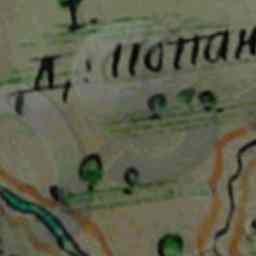 Д. Попан